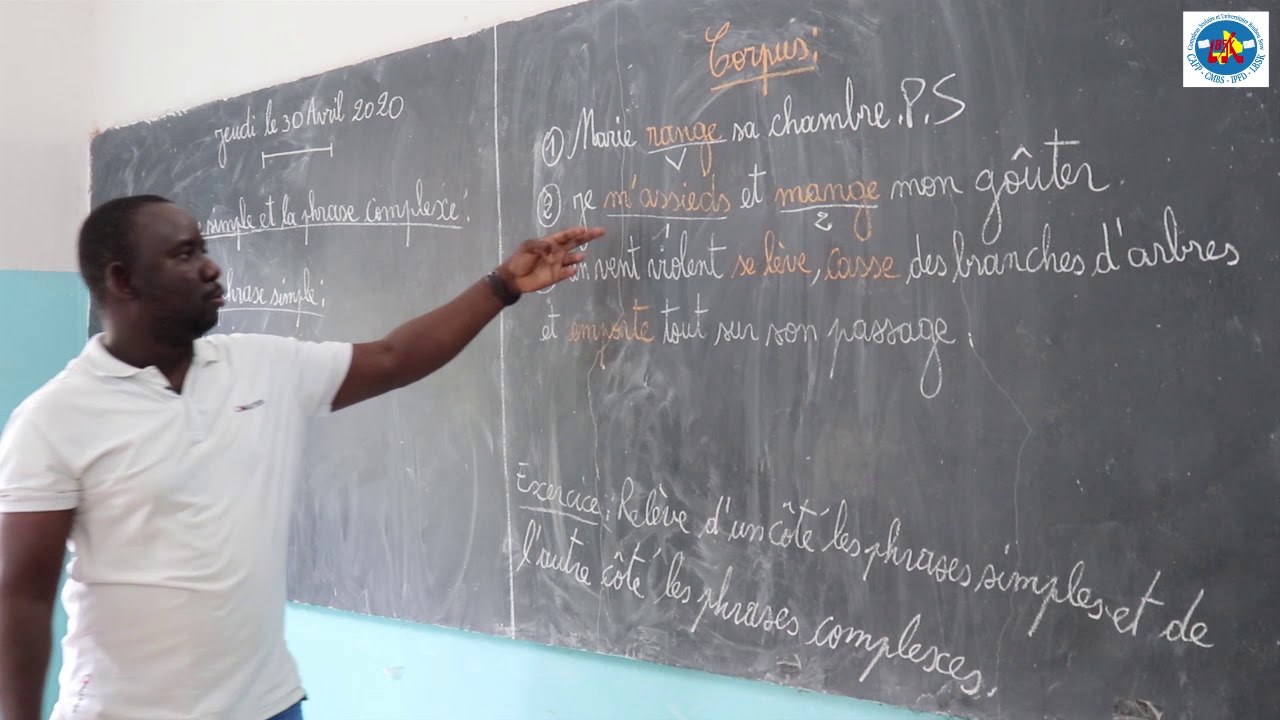 jeudi le 30 Avril 2020
simple et la phrase complexe :
phrase simple :
Corpus :
① Marie range sa chambre. P.S
② Je m'assieds et mange mon goûter.
1 2
un vent violent se lève, casse des branches d'arbres
et emporte tout sur son passage.
Exercice : Relève d'un côté les phrases simples et de
l'autre côté les phrases complexes.
Complexe Scolaire et Universitaire
LBSK
CAFP - CMBS - IPFD - LBSK